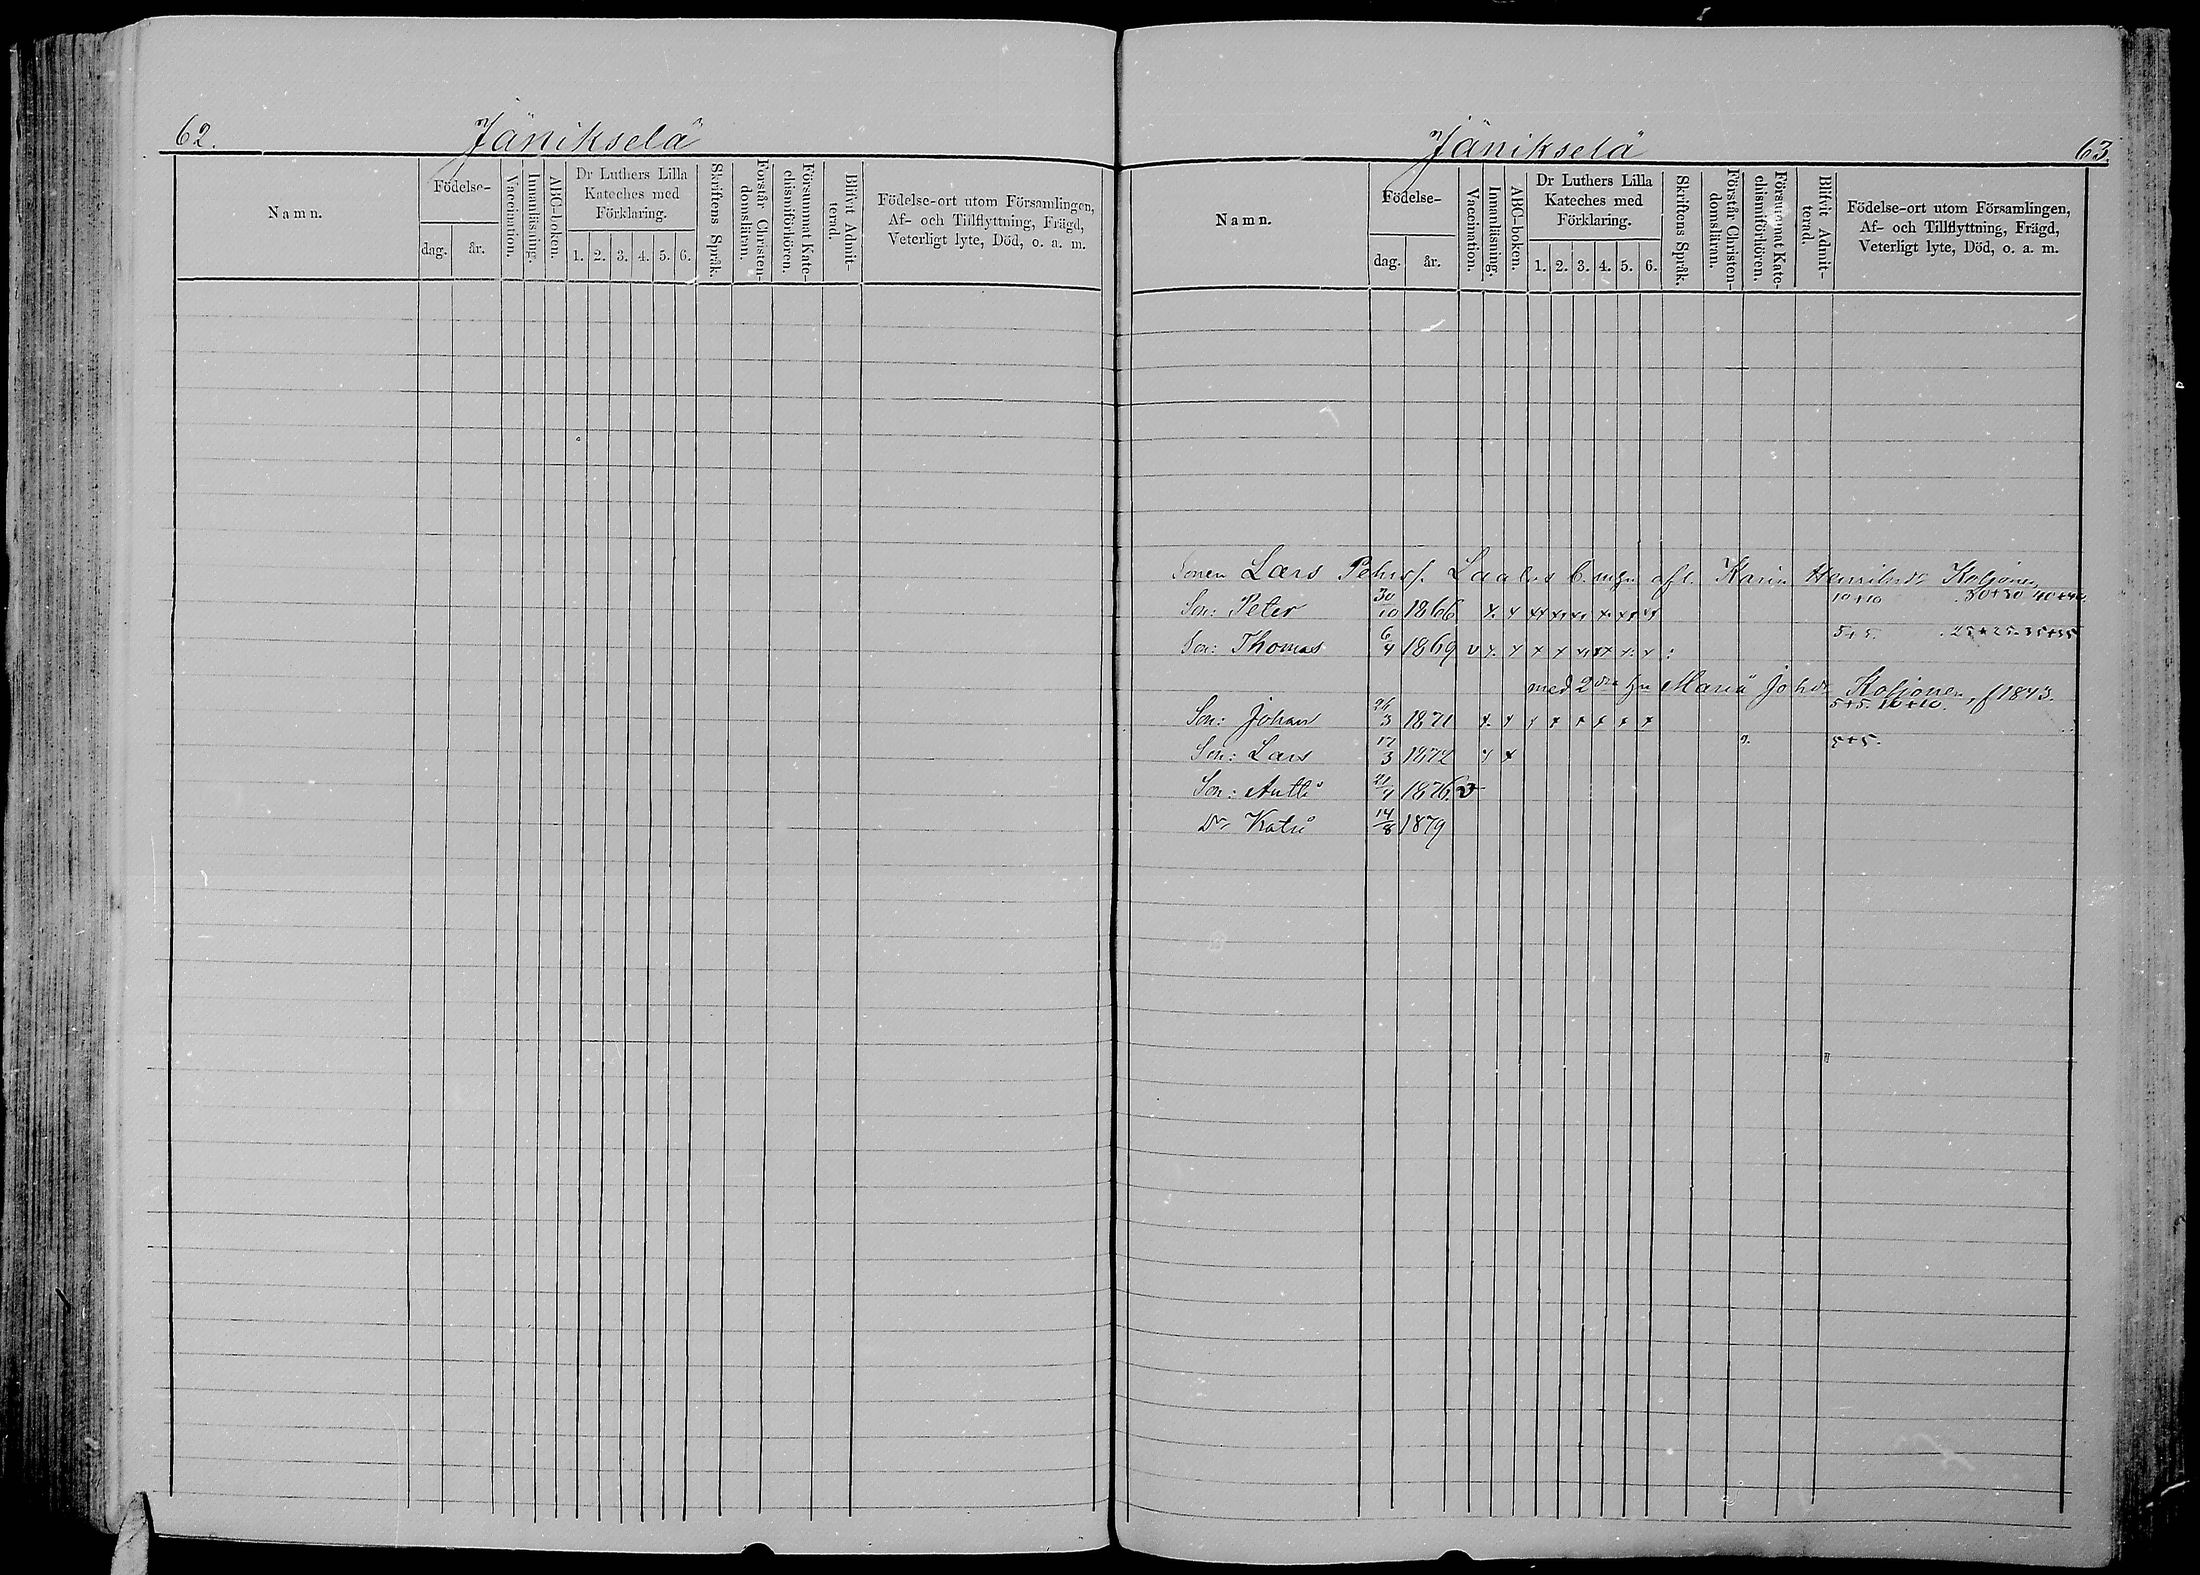 62. Jänikselä
Namn.
Födelse-
dag. år.
Vaccination.
Innanläsning.
ABC-boken.
Dr Luthers Lilla Kateches med Förklaring.
1. 2. 3. 4. 5. 6.
Skriftens Språk.
Förstår Christendomsläran.
Försummat Katechismiförhören.
Blifvit Admitterad.
Födelse-ort utom Församlingen,
Af- och Tillflyttning, Frägd,
Veterligt lyte, Död, o. a. m.
Jänikselä 63.
Namn.
Födelse-
dag. år.
Vaccination.
Innanläsning.
ABC-boken.
Dr Luthers Lilla
Kateches med
Förklaring.
1. 2. 3. 4. 5. 6.
Skriftens Språk.
Förstår Christendomsläran.
Försummat Katechismiförhören.
Blifvit Admitterad.
Födelse-ort utom Församlingen,
Af- och Tillflyttning, Frägd,
Veterligt lyte, Död, o. a. m.
Sonen Lars Pehrss. b. m. afl. Karin Henriksdr
Son: Peter 30/10 1866 10+10 30+30 40+40
Son: Thomas 6/4 1869 v 5+5. 25+25 35+35
med 2dra Maria Johdr f 1843.
Son: Johan 1871 5+5 10+10.
Son: Lars 17/3 5+5.
Son: Antti 1876 v
Dr Katri 14/8 1879